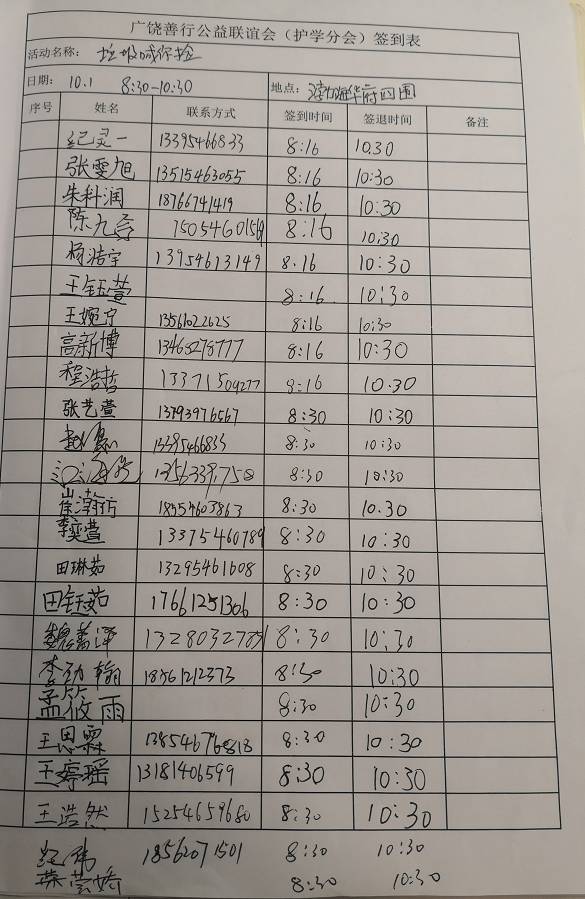 广饶善行公益联谊会（护学分会）签到表
活动名称：垃圾减你捡
日期：10.1 8:30-10:30 地点：渤海华府四围
序号 姓名 联系方式 签到时间 签退时间 备注
纪灵一 13395466833 8:16 10.30
张雯旭 13515463055 8:16 10:30
朱科润 18766741419 8:16 10:30
陈九 8:16 10:30
杨浩宇 13954613149 8.16 10:30
王钰萱 8:16 10:30
王婉宁 13561022625 8:16 10:30
高新博 13465278777 8:16 10:30
程浩哲 13371509277 8:16 10.30
张艺萱 13793976567 8:30 10:30
13395466833 8:30 10:30
8:30 10:30
崔瀚方 18554603863 8:30 10.30
李奕萱 13375460789 8:30 10:30
田琳茹 13295461608 8:30 10:30
田钰茹 17661251306 8:30 10:30
魏 8:30 10:30
李劲翰 18561212373 8:30 10:30
孟筱雨 8:30 10:30
王思霖 8:30 10:30
王婷瑶 13181406599 8:30 10:30
王浩然 15254659680 8:30 10:30
纪伟 18562071501 8:30 10:30
8:30 10:30